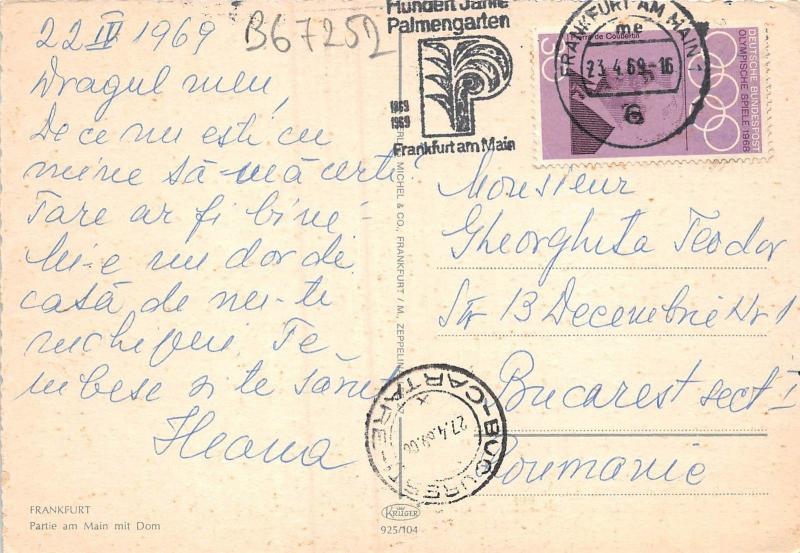 22 IV 1969
B67252
Dragul meu,
De ce nu ești cu
mine să mă cerți?
Tare ar fi bine -
Mi-e un dor de
casă de nu-te
nchipui. Te
mbese și te sărut
Ileana
Hundert Jahre
Palmengarten
1869
1969
Frankfurt am Main
FRANKFURT AM MAIN 1
me
23.4.69-16
G
Pierre de Coubertin
DEUTSCHE BUNDESPOST
OLYMPISCHE SPIELE 1968
Monsieur
Gheorghița Teodor
Str 13 Decembrie Nr 1
Bucarest sect I
Roumanie
BUCUREȘTI
CARTARE
27.4.69
MICHEL & CO., FRANKFURT / M., ZEPPELIN
FRANKFURT
Partie am Main mit Dom
KRÜGER
925/104